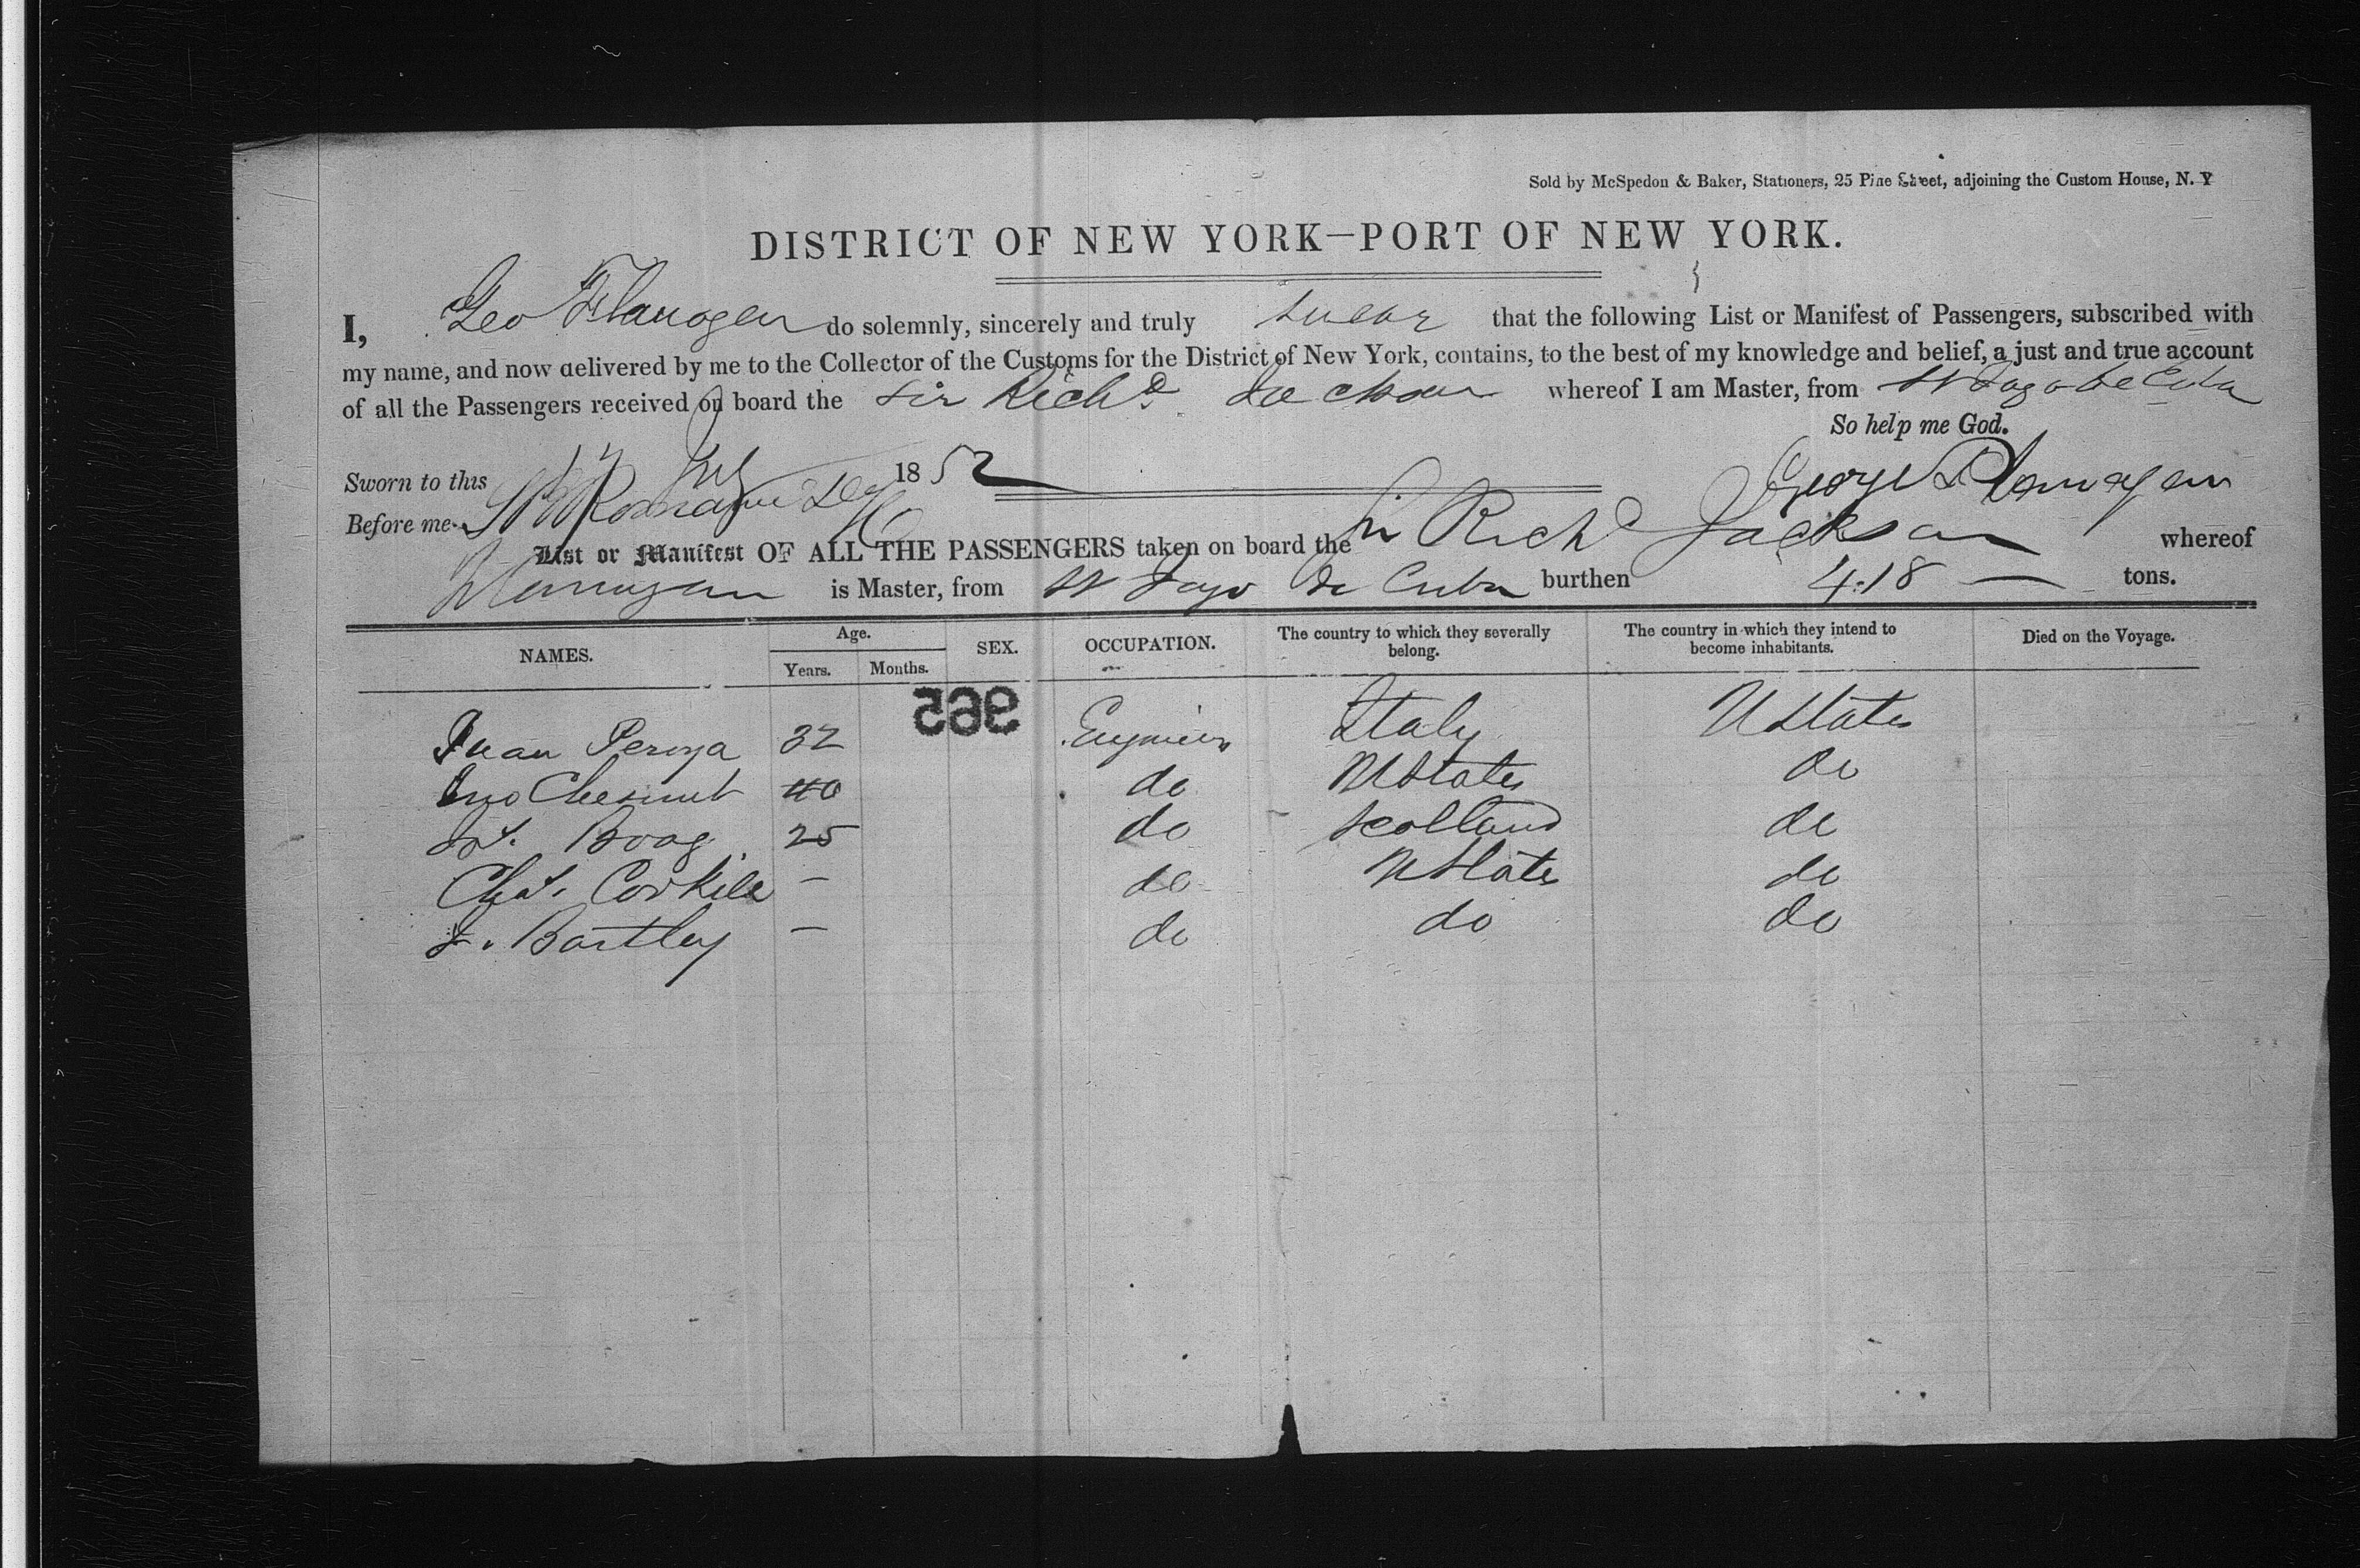 Sold by McSpedon & Baker, Stationers, 25 Pine Street, adjoining the Custom House, N. Y
DISTRICT OF NEW YORK—PORT OF NEW YORK.
I, Geo Flanagen do solemnly, sincerely and truly swear that the following List or Manifest of Passengers, subscribed with
my name, and now delivered by me to the Collector of the Customs for the District of New York, contains, to the best of my knowledge and belief, a just and true account
of all the Passengers received on board the Sir Richd. Jackson whereof I am Master, from St Jago de Cuba
So help me God.
Sworn to this July 1852 George Flanagen
Before me
List or Manifest OF ALL THE PASSENGERS taken on board the Sir Richd Jackson whereof
Flanagan is Master, from St Jago de Cuba burthen 418 — tons.
NAMES. Age. SEX. OCCUPATION. The country to which they severally belong. The country in which they intend to become inhabitants. Died on the Voyage.
Years. Months.
596
Juan 32 Engineer Italy UStates
Jno Chesnut 40 do UStates do
Boag 25 do Scotland do
Chas. Corkill — do UStates do
J. Bartley — do do do